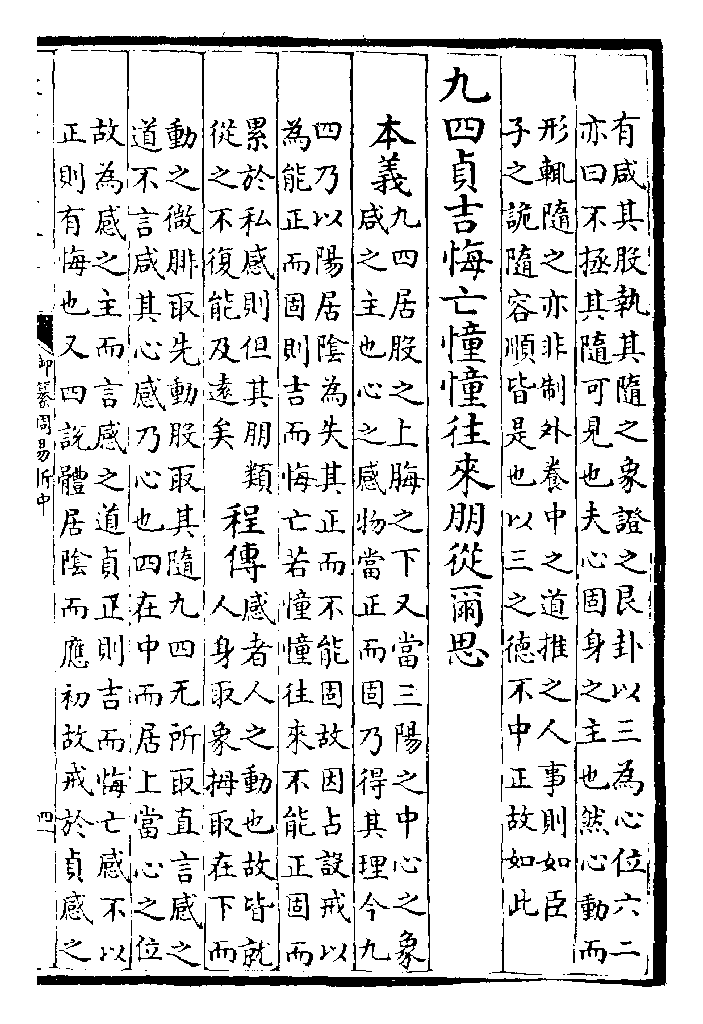 有咸其股執其隨之象證之艮卦以三為心位六二
亦曰不拯其隨可見也夫心固身之主也然心動而
形輒隨之亦非制外養中之道推之人事則如臣
子之詭隨容順皆是也以三之德不中正故如此
九四貞吉悔亡憧憧往來朋從爾思
本義九四居股之上脢之下又當三陽之中心之象
咸之主也心之感物當正而固乃得其理今九
四乃以陽居陰為失其正而不能固故因占設戒以
為能正而固則吉而悔亡若憧憧往來不能正固而
累於私感則但其朋類
從之不復能及遠矣
程傳感者人之動也故皆就
人身取象拇取在下而
動之微腓取先動股取其隨九四无所取直言感之
道不言咸其心感乃心也四在中而居上當心之位
故為感之主而言感之道貞正則吉而悔亡感不以
正則有悔也又四說體居陰而應初故戒於貞感之
御纂周易折中